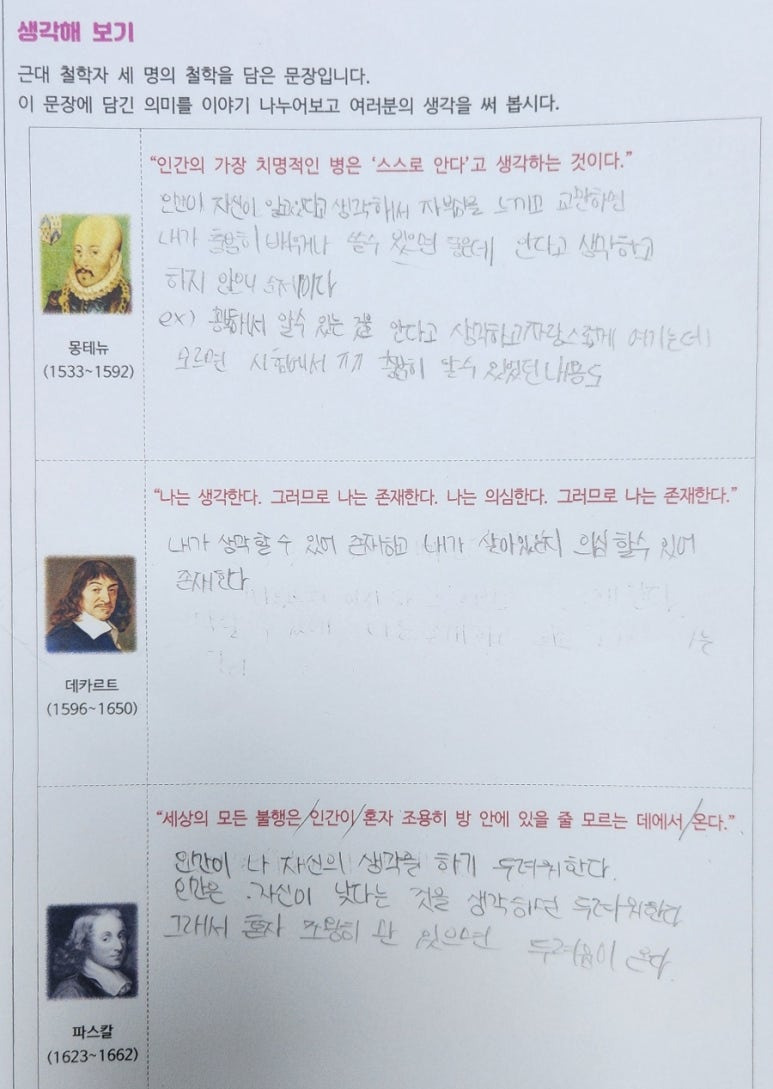 생각해 보기
근대 철학자 세 명의 철학을 담은 문장입니다.
이 문장에 담긴 의미를 이야기 나누어보고 여러분의 생각을 써 봅시다.
“인간의 가장 치명적인 병은 ‘스스로 안다’고 생각하는 것이다.”
인간이 자신이 알고있다고 생각해서 자부심을 느끼고 교만하면
내가 충분히 배우거나 쓸수 있으면 좋은데 안다고 생각하고
하지 않으니
ex) 해서 알수 있는 것을 안다고 생각하고 자랑스럽게 여기는데
모르면 시험에서 ㅠㅠ 충분히 알수 있었던 내용도
몽테뉴
(1533~1592)
“나는 생각한다. 그러므로 나는 존재한다. 나는 의심한다. 그러므로 나는 존재한다.”
내가 생각할 수 있어 존재하고 내가 살아있는지 의심 할수 있어
존재한다
데카르트
(1596~1650)
“세상의 모든 불행은 인간이 혼자 조용히 방 안에 있을 줄 모르는 데에서 온다.”
인간이 나 자신의 생각을 하기 두려워한다.
인간은 자신이 낮다는 것을 생각하면 두려워한다
그래서 혼자 조용히 있으면 두려움이 온다.
파스칼
(1623~1662)